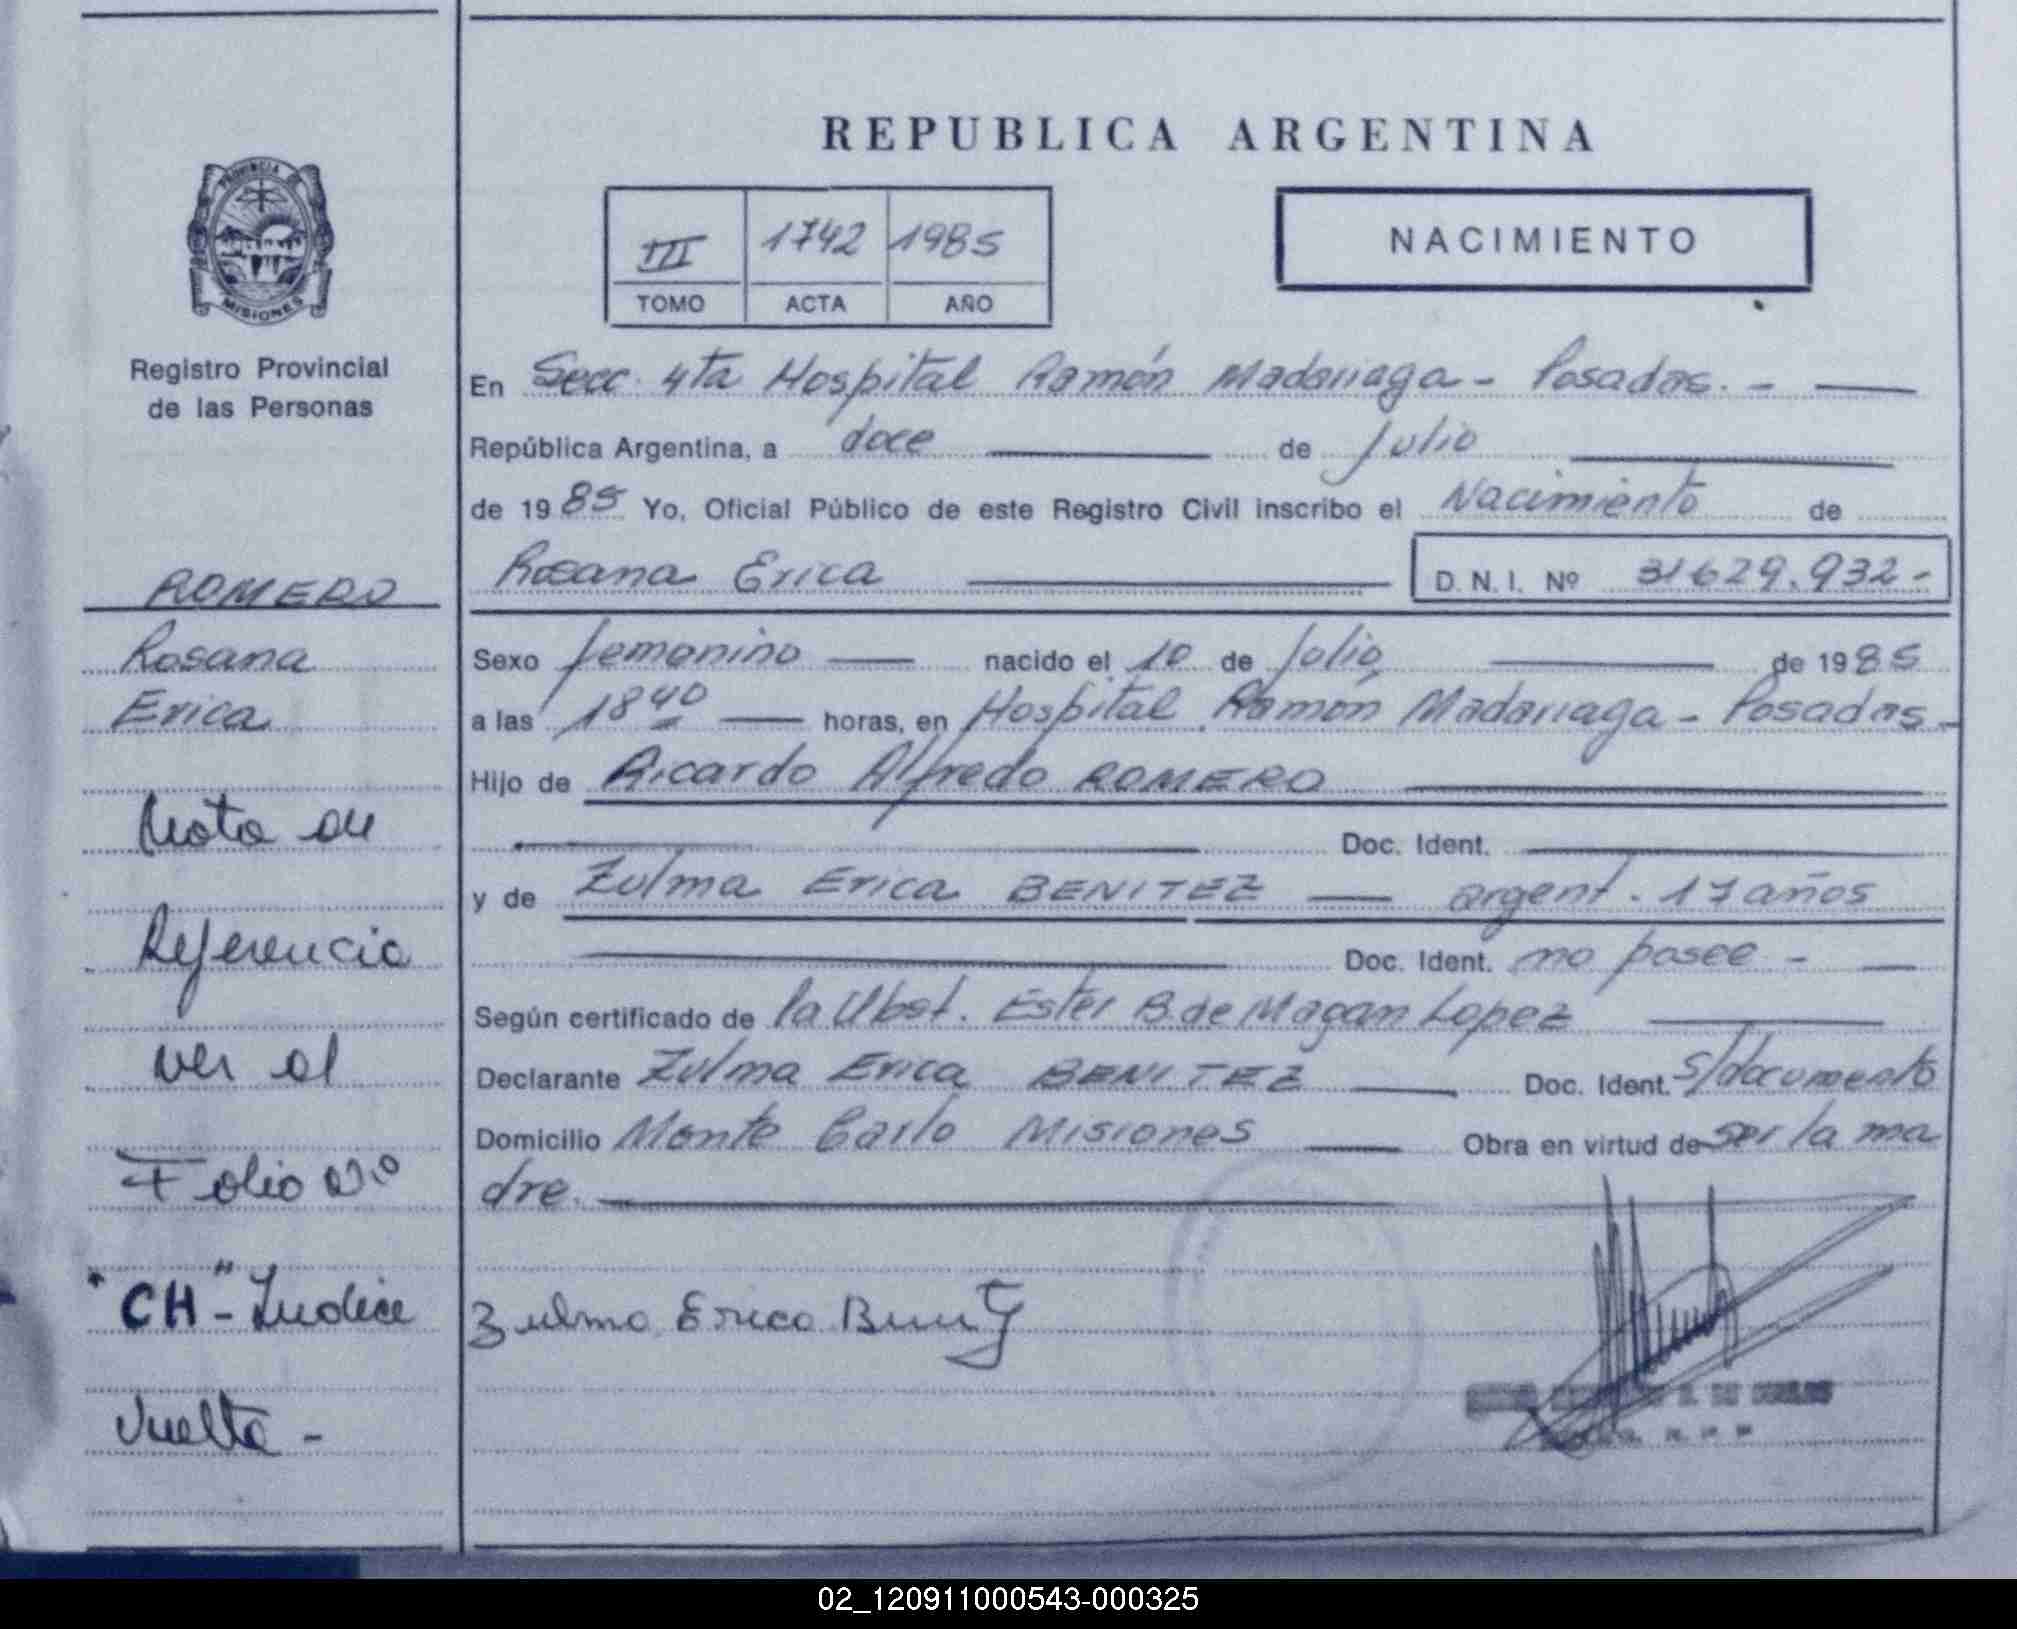 REPUBLICA ARGENTINA
PROVINCIA DE
MISIONES
Registro Provincial
de las Personas
III 1742 1985
TOMO ACTA AÑO
NACIMIENTO
En Secc. 4ta Hospital Ramón Madariaga - Posadas. -
República Argentina, a doce de julio
de 1985 Yo, Oficial Público de este Registro Civil inscribo el Nacimiento de
Rosana Erica D. N. I. Nº 31629.932-
Sexo femenino nacido el 10 de julio de 1985
a las 18 40 horas, en Hospital Ramón Madariaga - Posadas -
Hijo de Ricardo Alfredo ROMERO
Doc. Ident.
y de Zulma Erica BENITEZ argent. 17 años
Doc. Ident. no posee -
Según certificado de la Obst. Ester B. de Magan Lopez
Declarante Zulma Erica BENITEZ Doc. Ident. s/documento
Domicilio Monte Carlo Misiones Obra en virtud de ser la ma
dre.
Zulma Erica
ROMERO
Rosana
Erica
Nota de
Referencia
ver al
Folio Nº
"CH" - Indice
Vuelta -
02_120911000543-000325